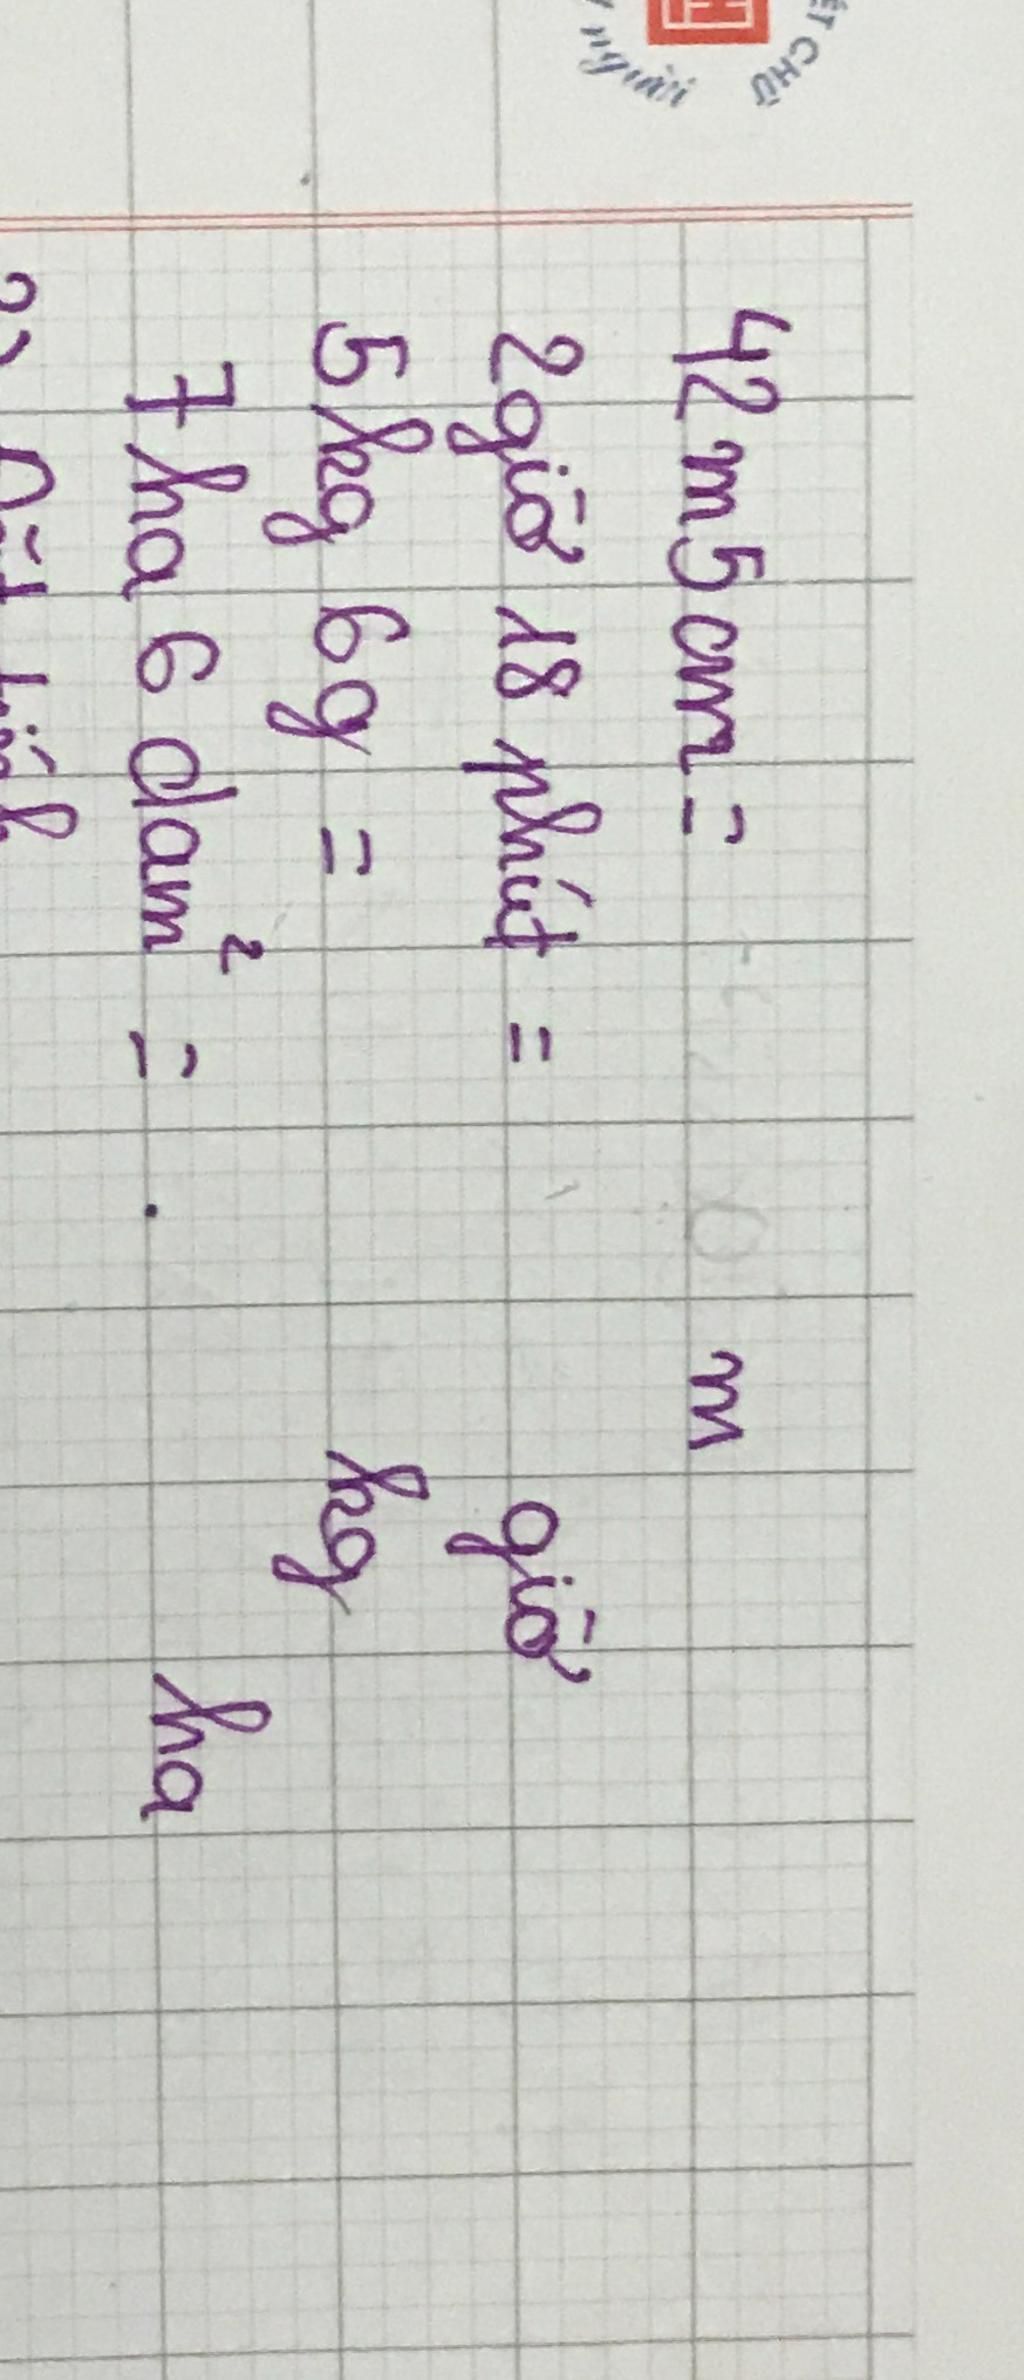 người
CHỮ
42 m 5 cm = m
2 giờ 18 phút = giờ
5 kg 6 g = kg
7 ha 6 dam² = ha
2) Đặt tính